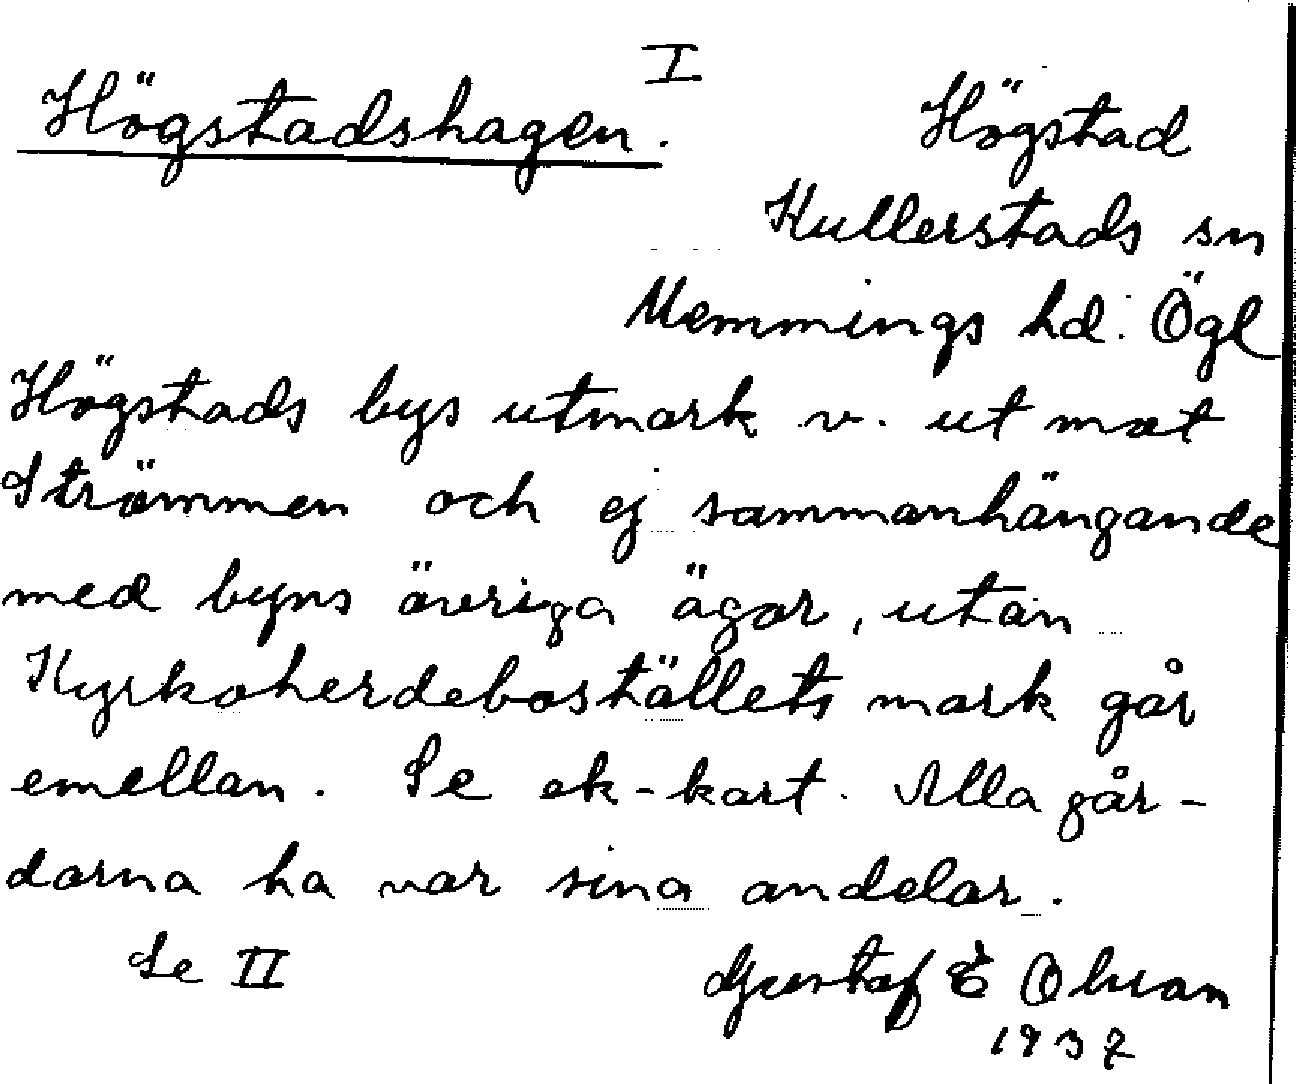 I
Högstadshagen.
Högstad
Kullerstads sn
Memmings hd. Ögl
Högstads bys utmark v. ut mot
Strömmen och ej sammanhängande
med byns övriga ägor, utan
Kyrkoherdeboställets mark går
emellan. Se ek-kart. Alla går-
darna ha var sina andelar.
Se II
Gustaf E Olson
1937